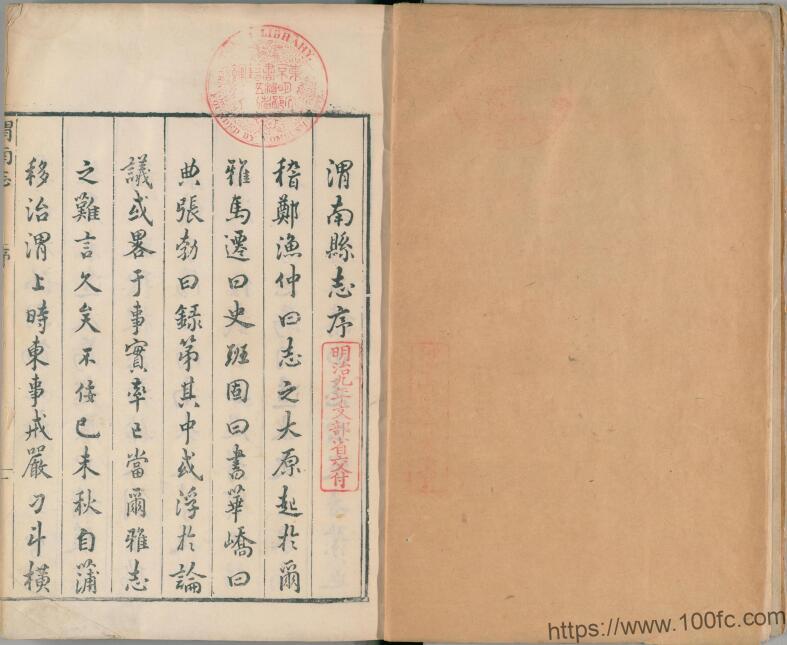 渭南縣志序
稽鄭漁仲曰志之大原起於爾
雅馬遷曰史班固曰書華嶠曰
典張勃曰録第其中或浮於論
議或畧于事實率已當爾雅志
之難言久矣不佞己未秋自蒲
移治渭上時東事戒嚴刁斗橫
渭南志
序
明治九年文部省交付
LIBRARY
https://www.100fc.com